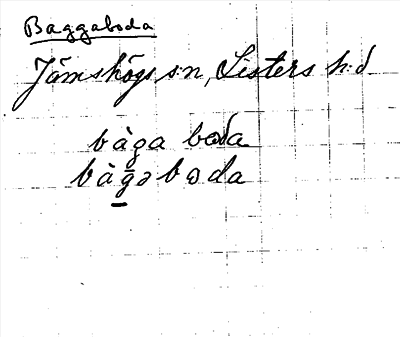 Baggaboda
Jämshögs s:n, Listers h:d
bàga boda
bàgəboda